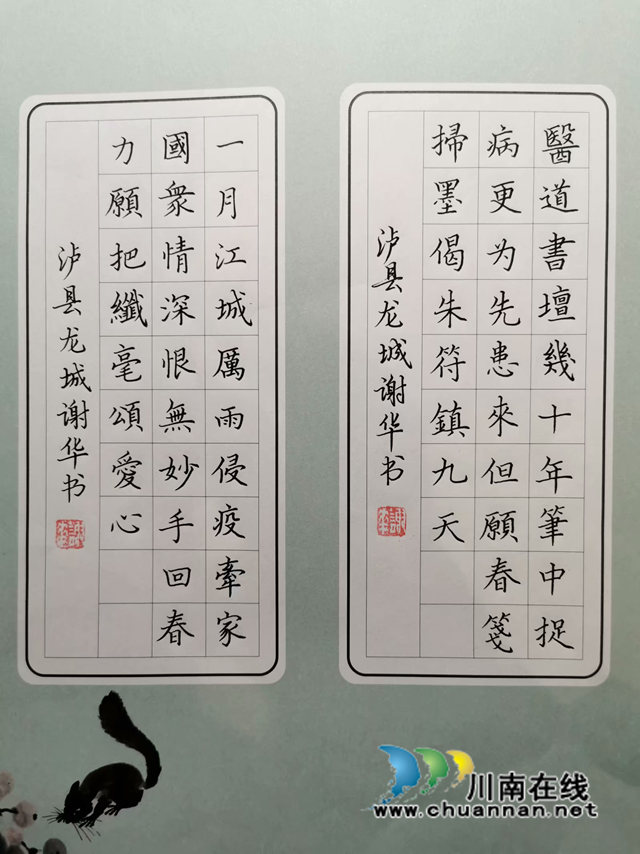 醫道書壇幾十年筆中捉
病更为先患來但願春箋
掃墨偈朱符鎮九天
泸县龙城谢华书
一月江城厲雨侵疫牽家
國衆情深恨無妙手回春
力願把纖毫頌愛心
泸县龙城谢华书
川南在线
www.chuannan.net